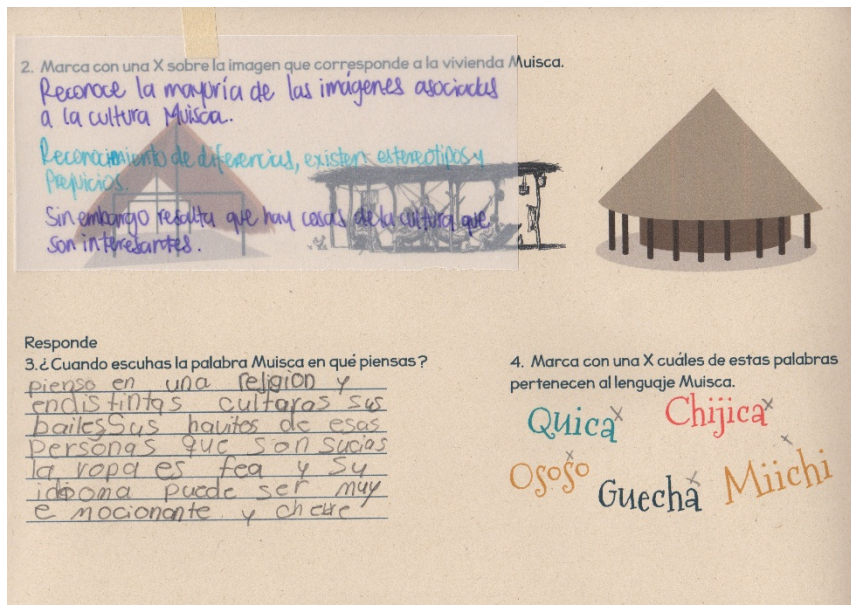 2. Marca con una X sobre la imagen que corresponde a la vivienda Muisca.
Reconoce la mayoría de las imágenes asociadas
a la cultura Muisca.
Reconocimiento de diferencias, existen estereotipos y
Prejuicios.
Sin embargo resalta que hay cosas de la cultura que
son interesantes.
Responde
3.¿Cuando escuhas la palabra Muisca en qué piensas?
pienso en una religion y
endistintas culturas sus
bailes Sus havitos de esas
personas que son sucias
la ropa es fea y su
idioma puede ser muy
emocionante y chevre
4. Marca con una X cuáles de estas palabras
pertenecen al lenguaje Muisca.
Quica x
Chijica x
Ososo x
Guecha x
Miichi x